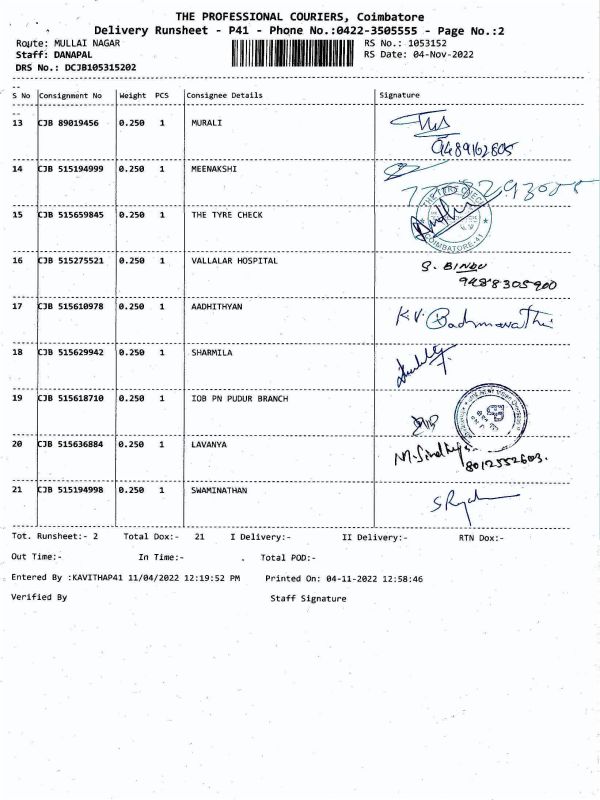 THE PROFESSIONAL COURIERS, Coimbatore
Delivery Runsheet - P41 - Phone No.:0422-3505555 - Page No.:2
Route: MULLAI NAGAR RS No.: 1053152
Staff: DANAPAL RS Date: 04-Nov-2022
DRS No.: DCJB105315202
S No Consignment No Weight PCS Consignee Details Signature
13 CJB 89019456 0.250 1 MURALI
9489162805
14 CJB 515194999 0.250 1 MEENAKSHI
15 CJB 515659845 0.250 1 THE TYRE CHECK
THE TYRE CHECK
COIMBATORE-41
16 CJB 515275521 0.250 1 VALLALAR HOSPITAL S. BINDU
9488305900
17 CJB 515610978 0.250 1 AADHITHYAN K.V. Padmavathi
18 CJB 515629942 0.250 1 SHARMILA
19 CJB 515618710 0.250 1 IOB PN PUDUR BRANCH
20 CJB 515636884 0.250 1 LAVANYA M. Sindhuja
8012552603.
21 CJB 515194998 0.250 1 SWAMINATHAN
Tot. Runsheet:- 2 Total Dox:- 21 I Delivery:- II Delivery:- RTN Dox:-
Out Time:- In Time:- . Total POD:-
Entered By :KAVITHAP41 11/04/2022 12:19:52 PM Printed On: 04-11-2022 12:58:46
Verified By Staff Signature